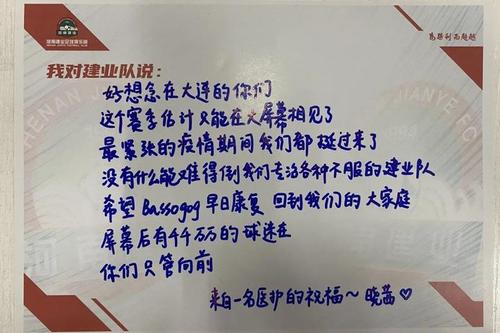 河南建业足球俱乐部
HENAN JIANYE FOOTBALL CLUB
为胜利而超越
我对建业队说：
好想念在大连的你们
这个赛季估计只能在大屏幕相见了
最紧张的疫情期间我们都挺过来了
没有什么能难得倒我们专治各种不服的建业队
希望Bassogog早日康复 回到我们的大家庭
屏幕后有千千万万的球迷在
你们只管向前
来自一名医护的祝福～ 晓茜♡